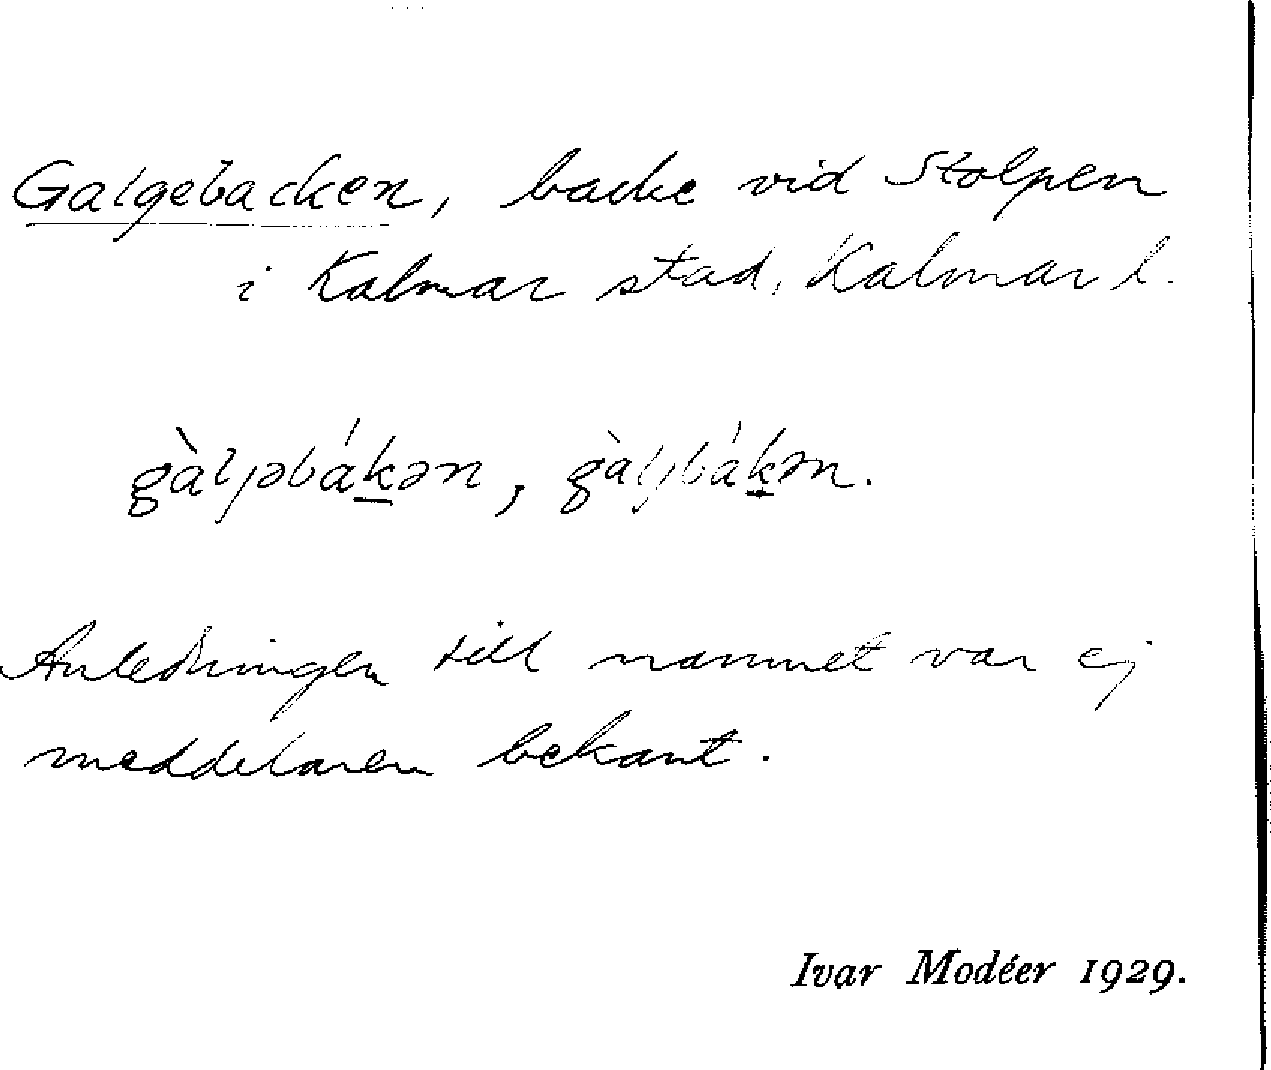 Galgebacken, backe vid Stolpen
i Kalmar stad, Kalmar l.
gàljəbák̲ən, gàljbák̲ən.
Anledningen till namnet var ej
meddelaren bekant.
Ivar Modéer 1929.